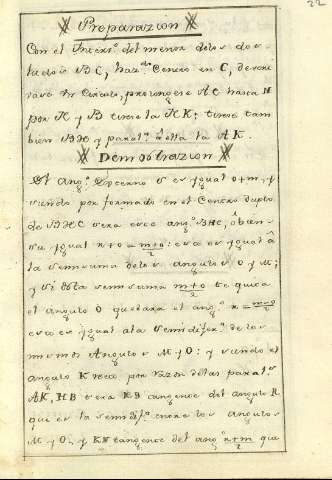 22
Preparazion
Con el Interv.º del menor delos dos
lados BC, haz.do Centro en C, descrivase
un Circulo, prolonguese AC hasta H
por H y B tirese la HK; tirese tam
bien BD y paral.ª à ella la AK.
Demostrazion
El ang.º Externo s es ygual o+m, y
siendo por formado en el Centro duplo
de BHC sera este ang.º BHC, ò bien
su ygual x+o = m+o/2: esto es ygual â
la semisuma delos angulos O y M;
y si desta semisuma m+o/2 se quita
el angulo O quedara el ang.º x = m-o/2
esto es ygual ala semidifer.ª de los
mismos Angulos M y O: y siendo el
angulo K recto por razon delas paral.s
AK, HB sera KB tangente del angulo R
que es la semidif.ª entre los angulos
M y O; y KH tangente del ang.º x+m que